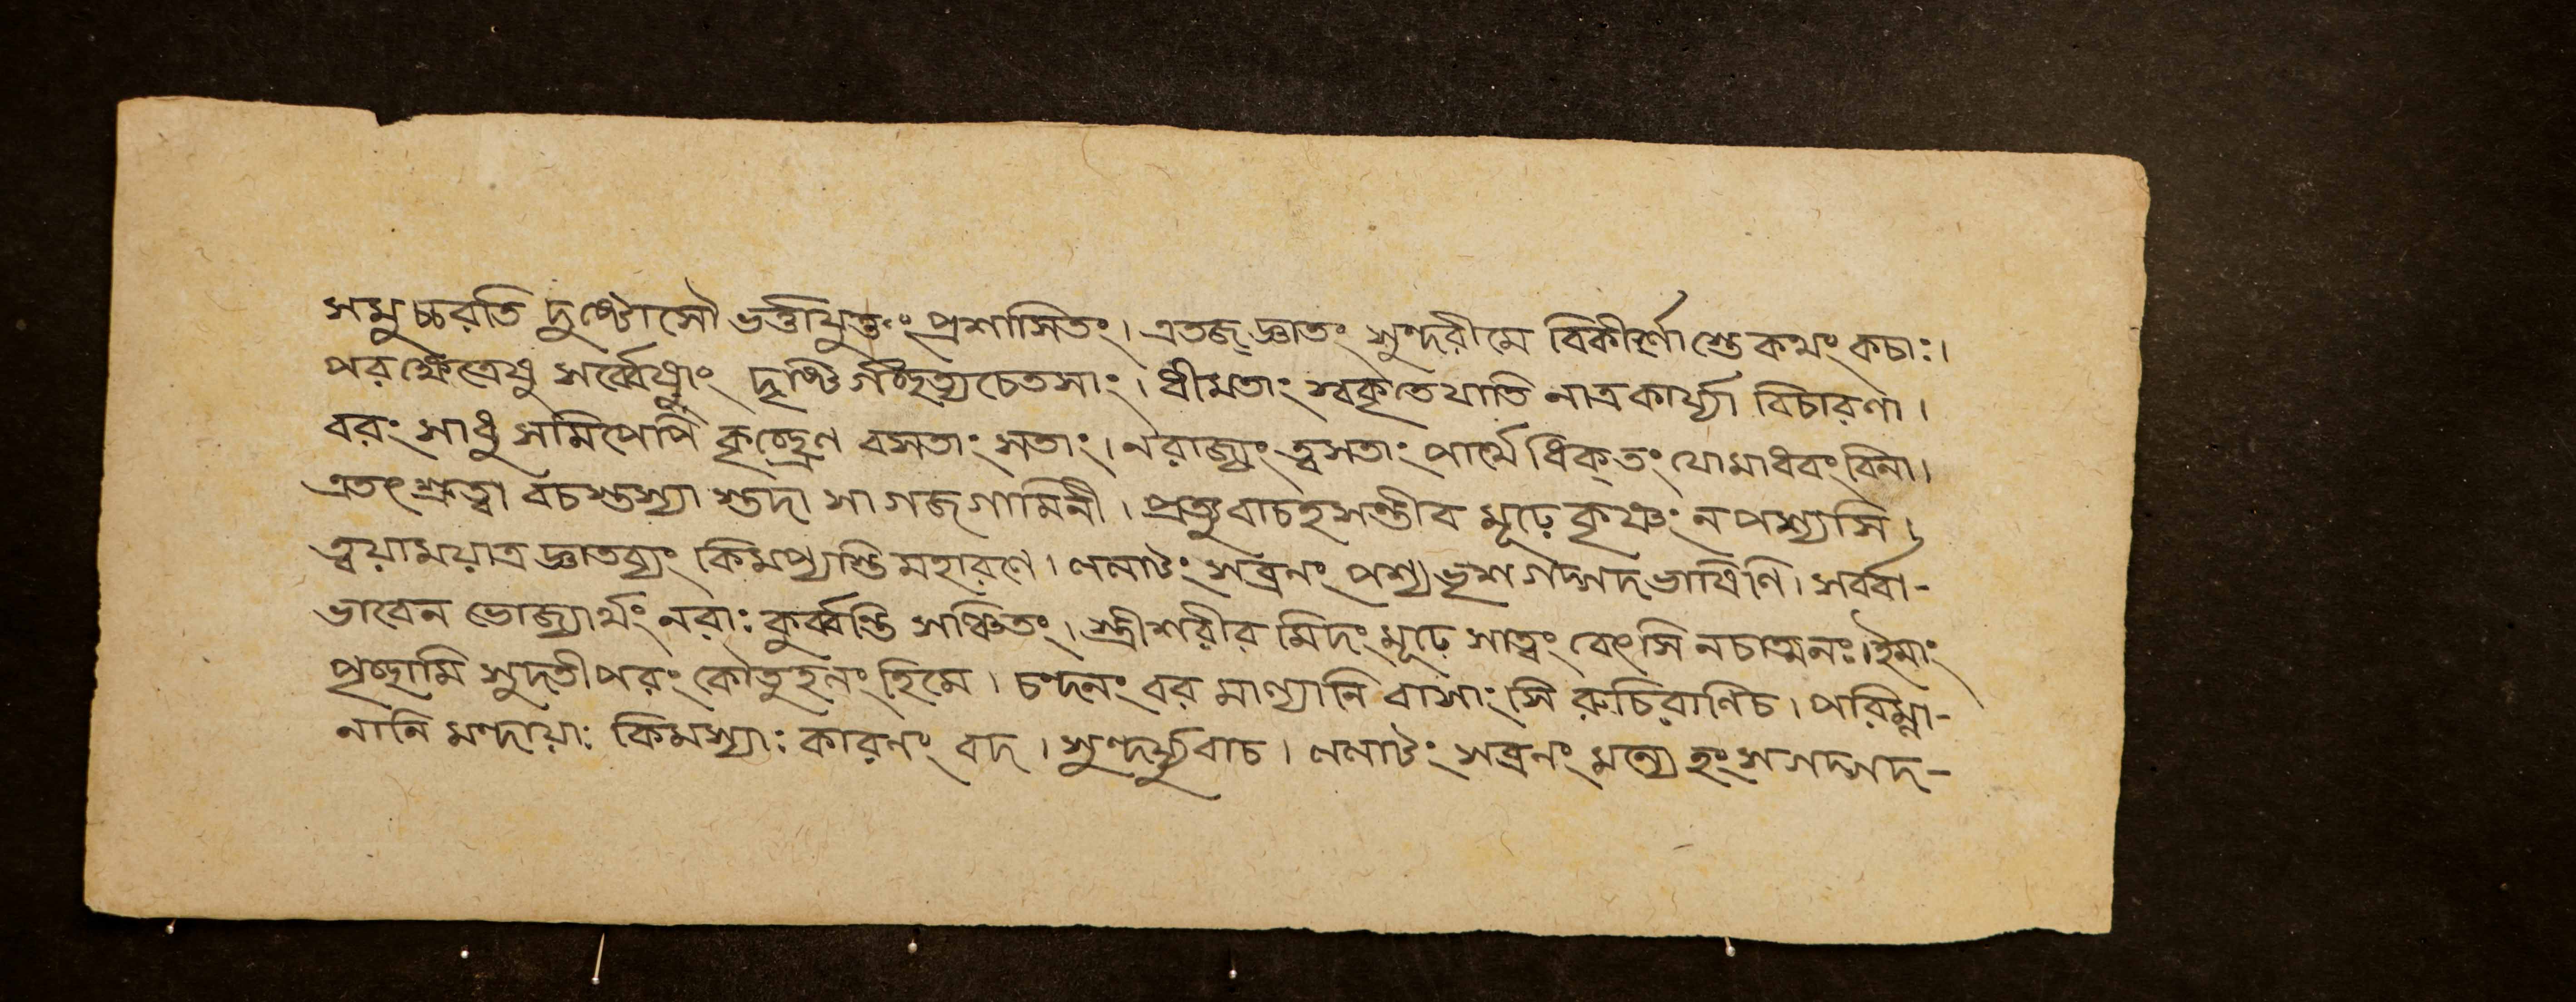 সমুচ্চরতি দুষ্টোসৌ ভর্ত্তাযুক্তং প্রশাসিতং। এতজ্জ্ঞাতং সুন্দরীমে বিকীর্ণাস্তে কথং কচাঃ।
পরক্ষেত্রেষু সর্ব্বেষাং দৃষ্টির্গচ্ছত্যচেতসাং। ধীমতাং স্বকৃতে যাতি নাত্রকার্য্যা বিচারণা।
বরং সাধু সমিপেপি কৃচ্ছ্রেণ বসতাং সতাং। নরাজ্যং ত্বসতাং পার্শ্বে ধিক্তং যোমাধবং বিনা।
এতৎ শ্রুত্বা বচস্তস্যা স্তদা সা গজগামিনী। প্রত্যুবাচহসন্তীব মূঢ়ে কৃষ্ণং নপশ্যসি।
ত্বয়াময়াত্র জ্ঞাতব্যং কিমপ্যস্তি মহারণে। ললাটং সব্রনং পশ্য ভৃশ গদ্গদভাষিণি। সর্ব্বা-
ভাবেন ভোজ্যার্থং নরাঃ কুর্ব্বন্তি সঞ্চিতং। স্ত্রীশরীর মিদং মূঢ়ে সাত্বং বেৎসি নচাত্মনঃ। ইমাং
পৃচ্ছামি সুদতী পরং কৌতুহলং হিমে। চন্দনং বর মাল্যানি বাসাংসি রুচিরাণিচ। পরিম্লা-
নানি মন্দায়াঃ কিমস্যাঃ কারনং বদ। সুন্দর্য্যুবাচ। ললাটং সব্রনং মন্যেহং সগদ্গদ-